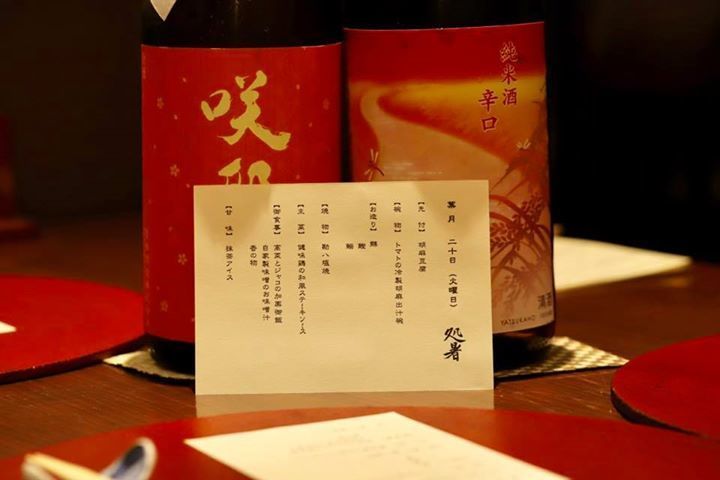 咲耶
純米酒
辛口
清酒
YATSUKAHO
処暑
葉月 二十日 (火曜日)
【先付】 胡麻豆腐
【椀物】 トマトの冷製胡麻出汁椀
【お造り】 鯛
【焼物】 勘八塩焼
【主菜】 健味鶏の和風ステーキソース
【御食事】 高菜とジャコの加薬御飯
自家製味噌のお味噌汁
香の物
【甘味】 抹茶アイス